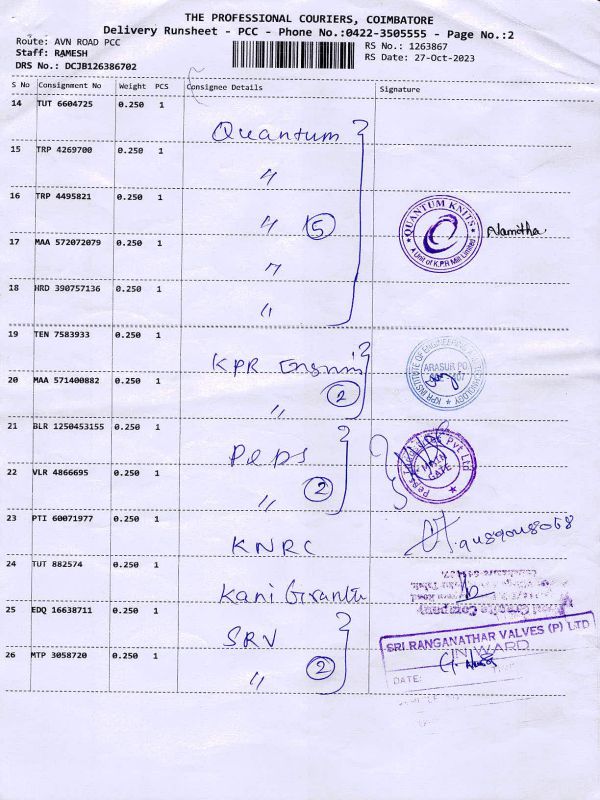 THE PROFESSIONAL COURIERS, COIMBATORE
Delivery Runsheet - PCC - Phone No.:0422-3505555 - Page No.:2
Route: AVN ROAD PCC
RS No.: 1263867
Staff: RAMESH
RS Date: 27-Oct-2023
DRS No.: DCJB126386702
S No Consignment No Weight PCS Consignee Details Signature
14 TUT 6604725 0.250 1 Quantum
15 TRP 4269700 0.250 1 "
16 TRP 4495821 0.250 1 " 5
QUANTUM KNITS
A Unit of K.P.R Mill Limited
Namitha
17 MAA 572072079 0.250 1 "
18 HRD 390757136 0.250 1 "
19 TEN 7583933 0.250 1 KPR
KPR INSTITUTE OF ENGINEERING AND TECHNOLOGY
ARASUR PO
20 MAA 571400882 0.250 1 " 2
21 BLR 1250453155 0.250 1 Peps
Pvt Ltd
MAIN GATE
22 VLR 4866695 0.250 1 " 2
23 PTI 60071977 0.250 1 KNRC
24 TUT 882574 0.250 1 Kani
25 EDQ 16638711 0.250 1 SRV
SRI RANGANATHAR VALVES (P) LTD
INWARD
26 MTP 3058720 0.250 1 " 2
DATE: